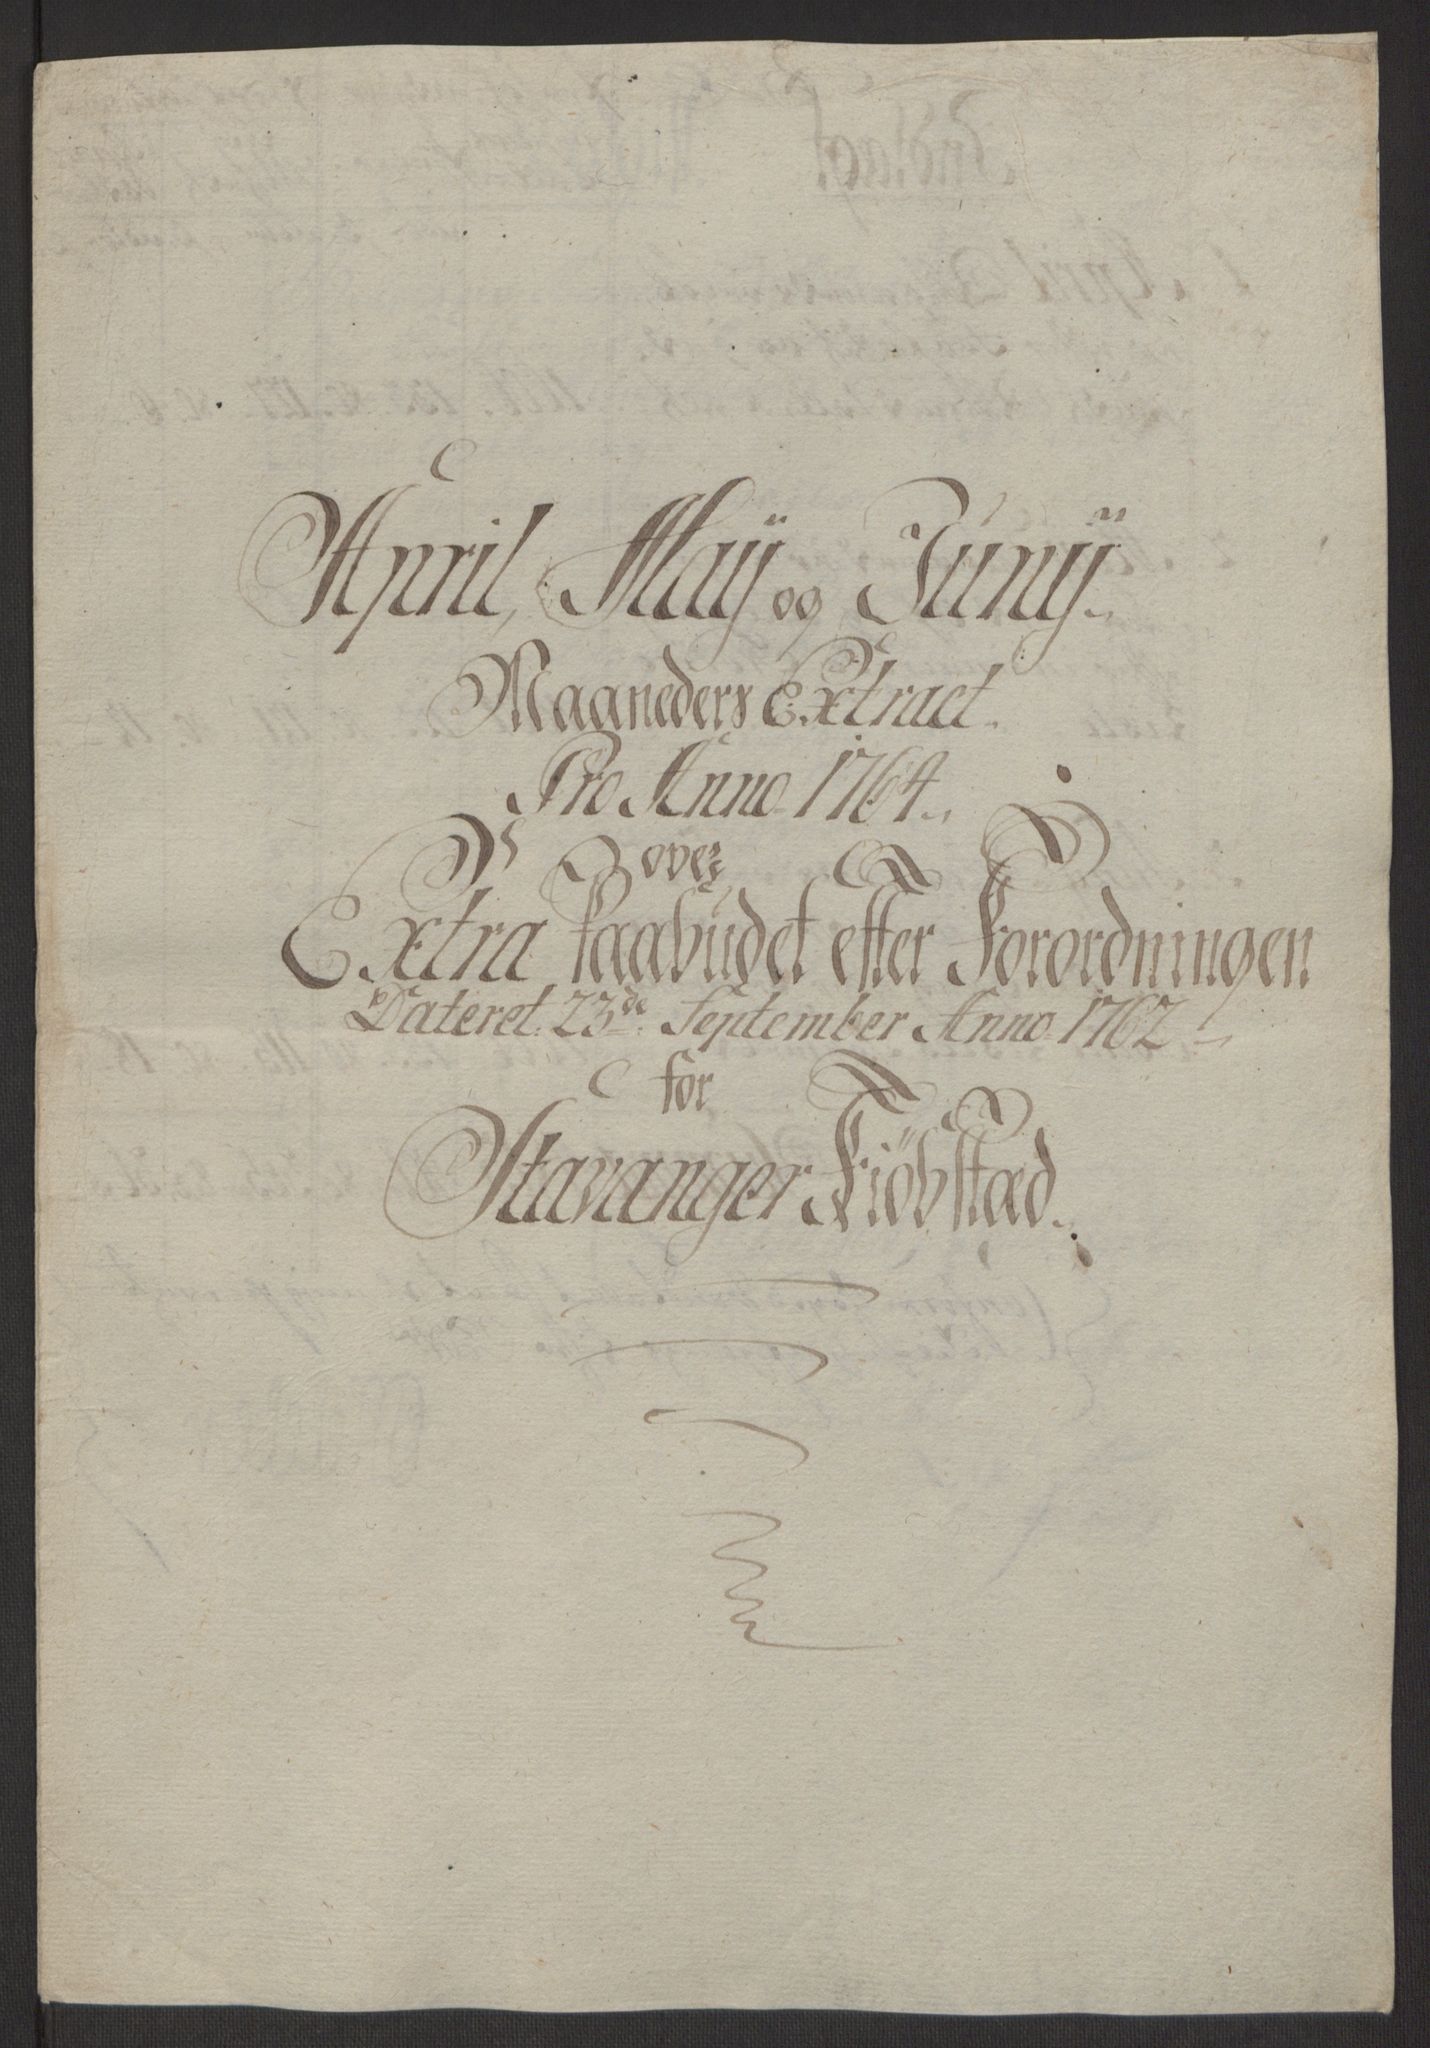 April, Maÿ og Junÿ
Maaneders Extract
Pro Anno 1764
over
Extra Paabudet efter Forordningen
Dateret 23de September Anno 1762
for
Stavanger Kiöbstæd